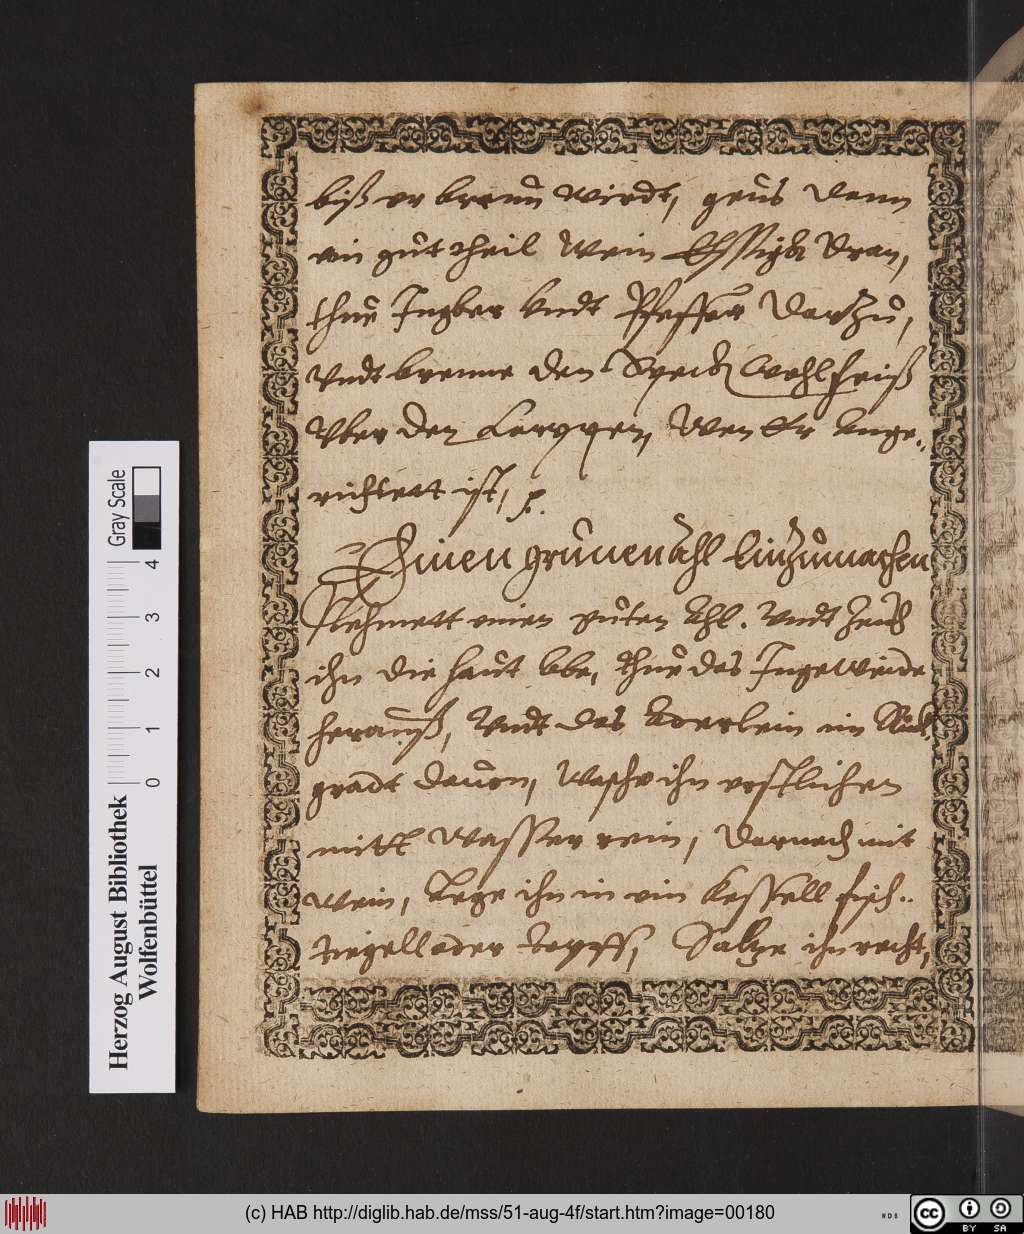 biß er braun wirdt, geus denn
ein gut theil Wein Esssigk dran,
thue Ingber vndt Pfeffer darzu,
Vndt brenne den Speck wohl heiß
Vber den Karppen, Wen Er ange-
richtett ist, p.
Einen grunen ahl Einzumachen
Nehmett einen guten Ahl. Vndt Zeuch
ihn die haut Abe, thue das Ingeweide
herauß, Vndt das Aderlein im Ruck
gradt dauon, Wasche ihn erstlichen
mitt Wasser rein, darnach mit
Wein, Lege ihn in ein kessell fisch-
tiegell oder topff, Saltze ihn recht,
Gray Scale
4
3
2
1
0
Herzog August Bibliothek
Wolfenbüttel
(c) HAB http://diglib.hab.de/mss/51-aug-4f/start.htm?image=00180
WDB
cc
BY SA